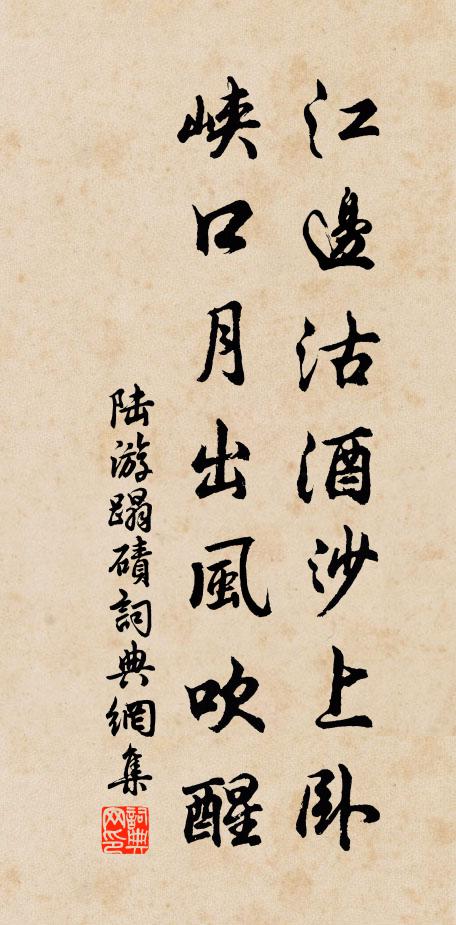 江邊沽酒沙上卧
峽口月出風吹醒
陆游蹋磧詞典網集
詞典网印